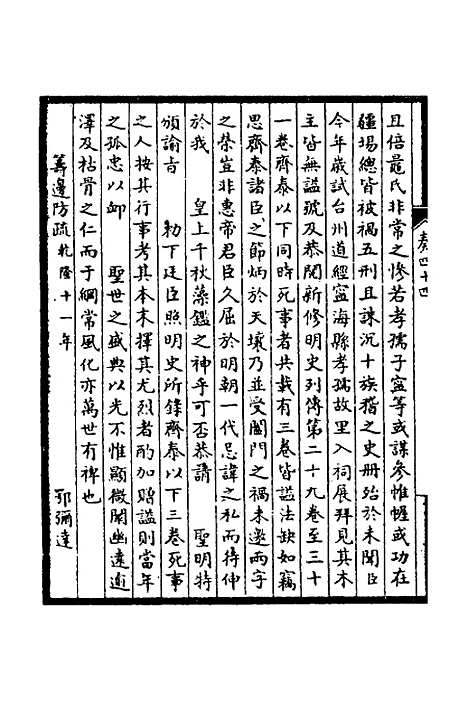 奏四十四
且倍鼂氏非常之慘若孝孺子寧等或謀參惟幄或功在
疆場總皆被禍五刑且誅沉十族稽之史册殆於未聞臣
今年歲試台州道經寧海縣孝孺故里入祠展拜見其木
主皆無諡號及恭閱新修明史列傳第二十九卷至三十
一卷齊泰以下同時死事者共載有三卷皆諡法缺如竊
思齊泰諸臣之節炳於天壤乃並受闔門之禍未邀兩字
之榮豈非惠帝君臣久屈於明朝一代忌諱之私而待伸
於我　皇上千秋藻鑑之神乎可否恭請　聖明特
頒諭旨　勅下廷臣照明史所錄齊泰以下三卷死事
之人按其行事考其本末擇其尤烈者酌加贈諡則當年
之孤忠以卹　聖世之盛典以光不惟顯微闡幽遠逾
澤及枯骨之仁而于綱常風化亦萬世有裨也
籌邊防疏乾隆十一年　鄂彌達